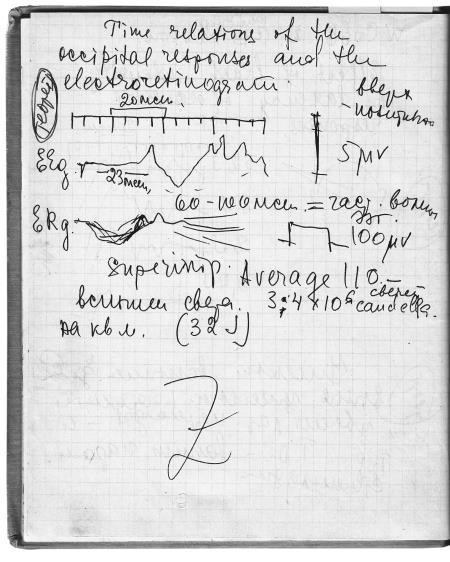 Time relations of the
occipital responses and the
electroretinogram.
вверх
20 мсек.
EEg
23 мсек,
5 μv
60 - 100 мсек. = част. волны
ERg.
100 μv
Superimp. Average 110.-
вспышек света. 3,4 x 10⁶ candella.
на кв м. (32 J)